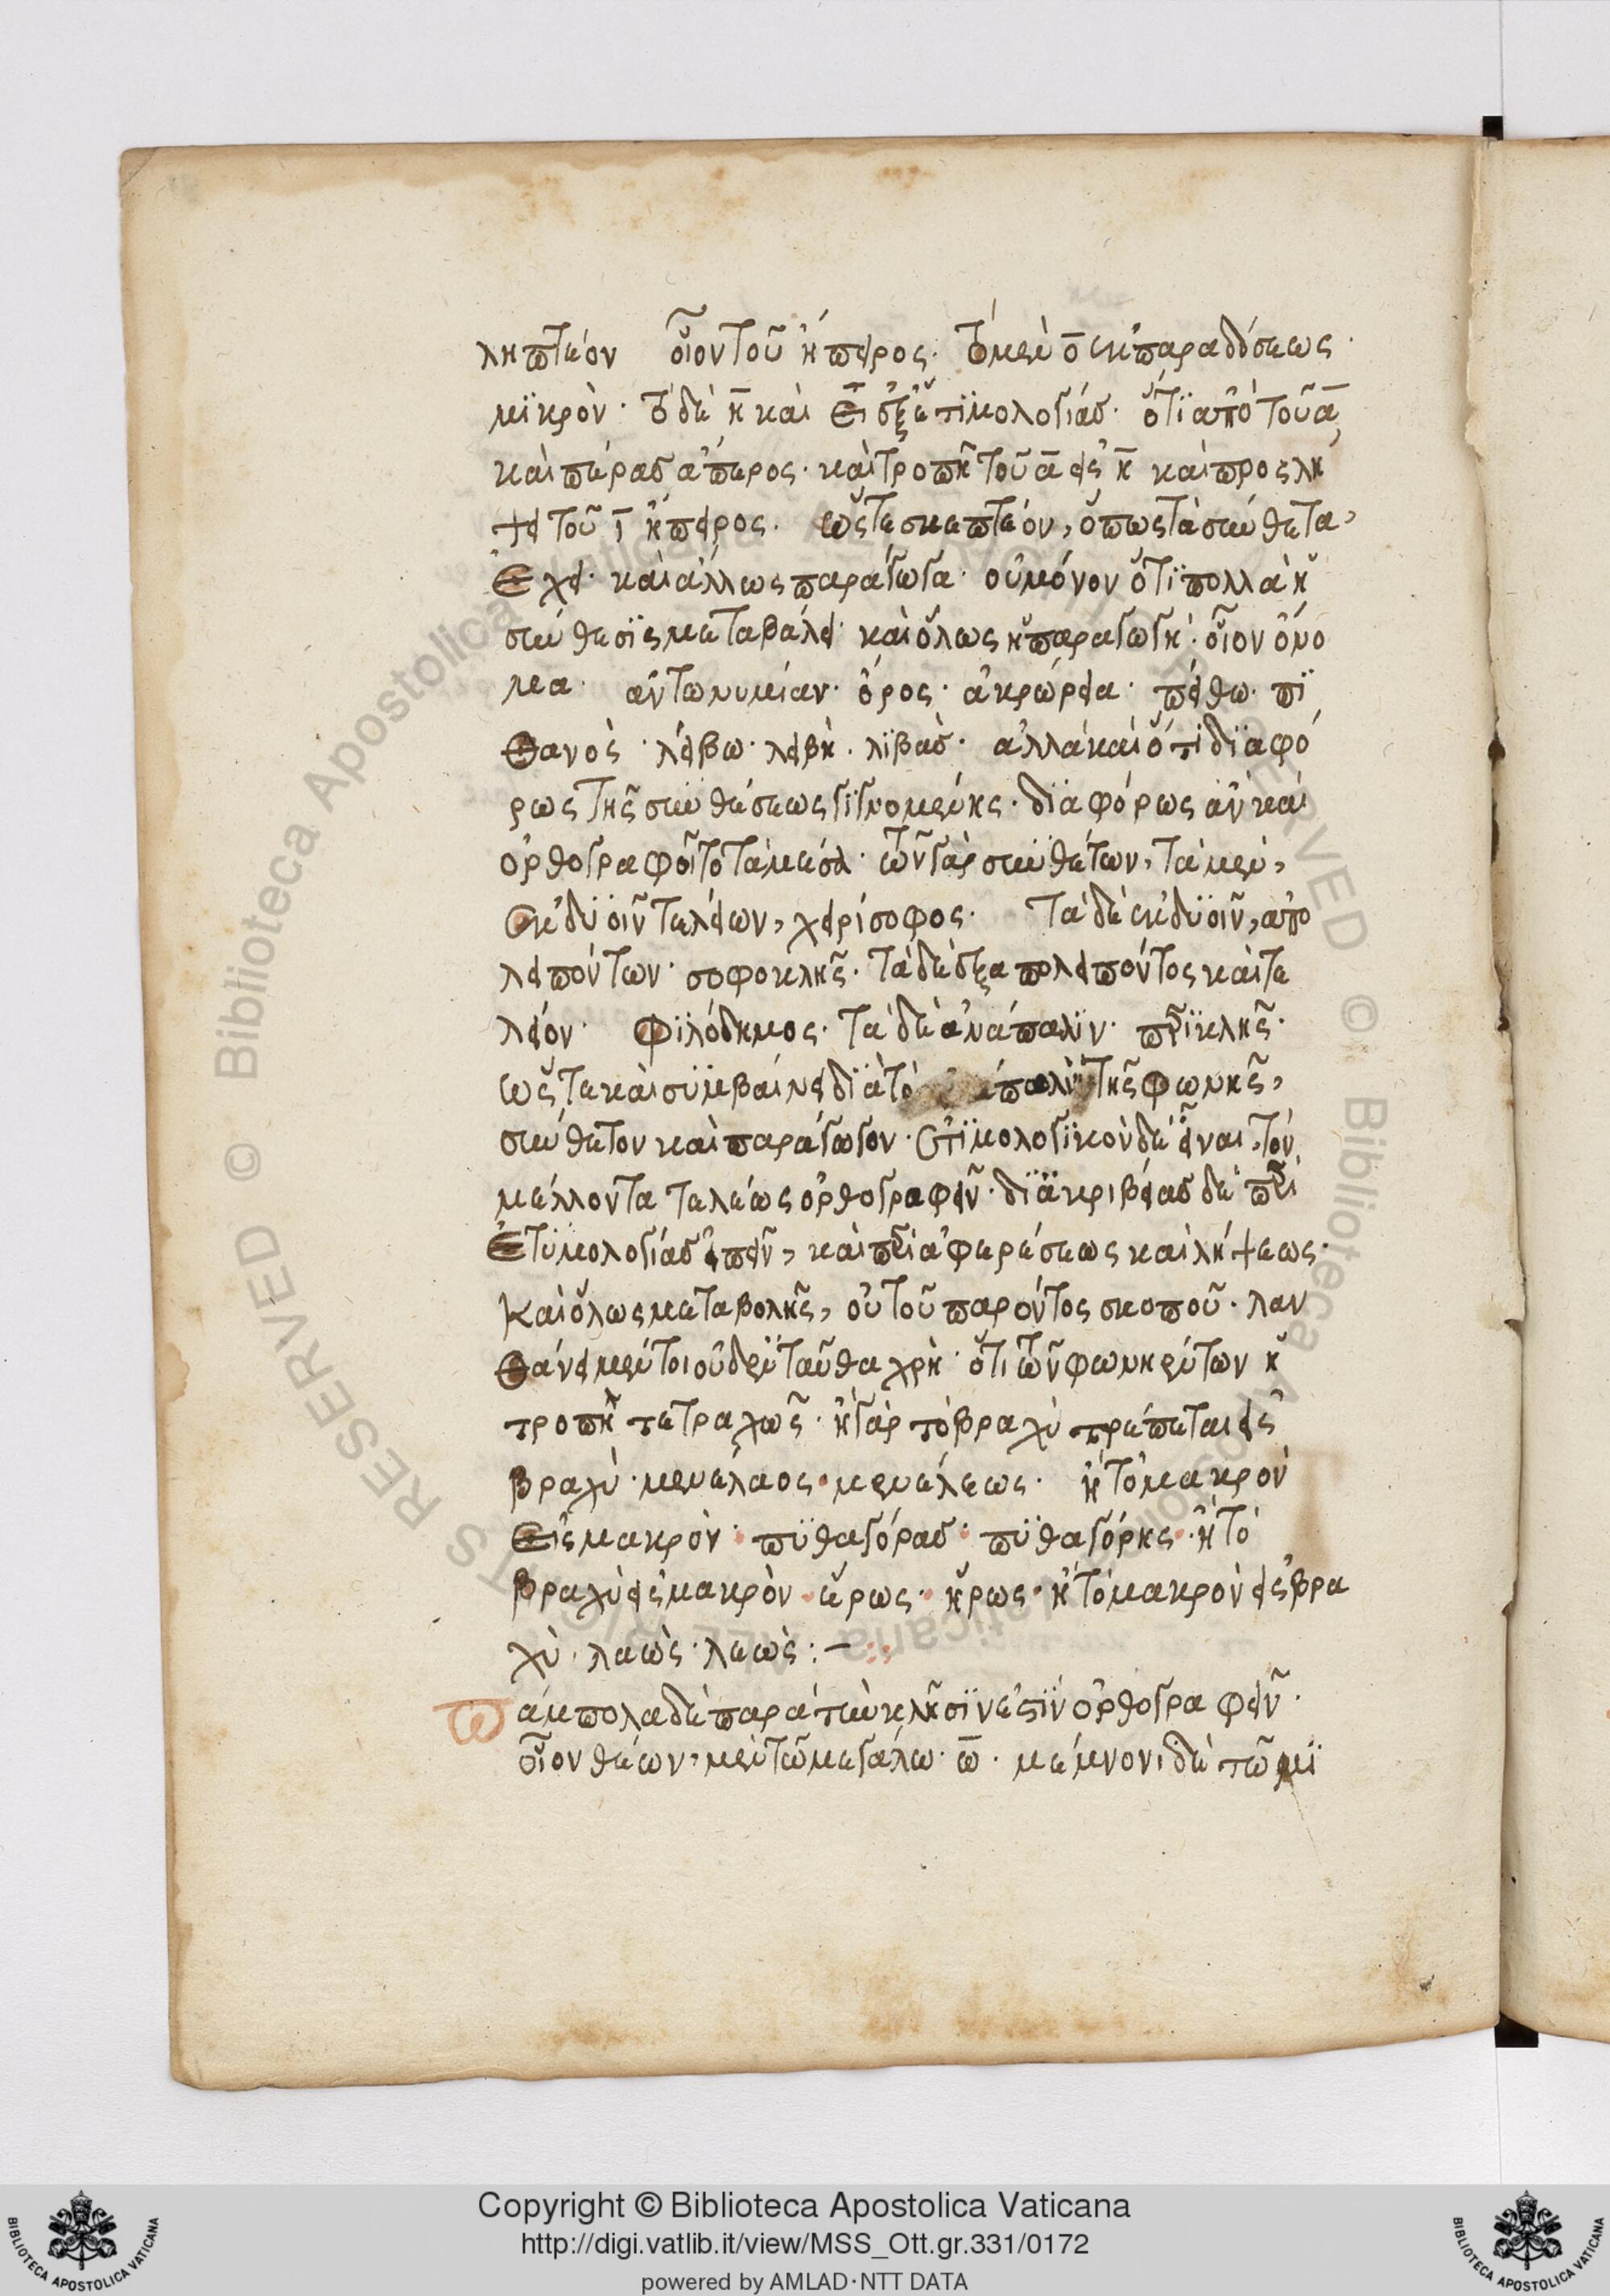 ληπτέον οἷον τοῦ ἤπειρος· τὸ μὲν ο̄ ἐκ παραδόσεως·
μϊκρὸν· τὸ δὲ η̄ καὶ ει ἐξ ἐτϊμολογίας· ὅτϊ ἀπὸ τοῦ ᾱ,
καὶ πέρας ἄπερος· καὶ τροπῆ τοῦ ᾱ εἰς η̄ καὶ προςλή
ψει τοῦ ῑ ἤπειρος. ὥστε σκεπτέον, ὅπως τὰ σύνθετα,
ἔχει· καὶ ἄλλως παράγωγα· οὐ μόνον ὅτϊ πολλὰ ἡ
σύνθεσϊς μεταβάλει· καὶ ὅλως ἡ παραγωγή· οἷον ὄνο
μα· ἀντωνυμίαν· ὄρος· ἀκρώρεια· πείθω· πϊ
θανὸς· λείβω· λειβὴ· λϊβάς· ἀλλὰ καὶ ὅτι δϊαφό
ρως τῆς συνθέσεως γϊγνομένης· δϊαφόρως ἂν καὶ
ὀρθογραφοῖτο τὰ μέσα· τῶν γὰρ συνθέτων, τὰ μὲν,
ἐκ δϋοῖν τελείων, χειρίσοφος· τὰ δὲ ἐκ δϋοῖν, ἀπο
λειπόντων· σοφοκλῆς· τὰ δὲ ἐξ ἀπολειπόντος καὶ τε
λείου· φϊλόδημος· τὰ δὲ ἀνάπαλϊν· περϊκλῆς·
ὥστε καὶ συμβαίνει δϊὰ τὸ πάλιν τῆς φωνῆς,
σύνθετον καὶ παράγωγον· ἐτϊμολογϊκὸν δὲ εἶναι, τὸν
μέλλοντα τελέως ὀρθογραφεῖν· δϊ ἀκριβείας δὲ περὶ
ἐτυμολογίας εἰπεῖν, καὶ περὶ ἀφαιρέσεως καὶ λήψεως·
καὶ ὅλως μεταβολῆς, οὐ τοῦ παρόντος σκοποῦ· λαν
θάνει μέντοι οὐδ' ἐνταῦθα χρὴ· ὅτι τῶν φωνηέντων ἡ
τροπὴ τετραχῶς· ἢ γὰρ τὸ βραχὺ τρέπεται εἰς
βραχὺ· μενέλαος· μενέλεως· ἢ τὸ μακρὸν
εἰς μακρὸν· πϋθαγόρας· πϋθαγόρης· ἢ τὸ
βραχὺ εἰς μακρὸν· ἔρως· ἥρως· ἢ τὸ μακρὸν εἰς βρα
χὺ· λαὼς· λεὼς:–
πάμπολα δὲ παρὰ τὴν κλῆσϊν ἐστϊν ὀρθογραφεῖν·
οἷον θέων, μὲν τῶ μεγάλω· ω̄· μέμνονι δὲ τῶ μϊ
Copyright © Biblioteca Apostolica Vaticana
http://digi.vatlib.it/view/MSS_Ott.gr.331/0172
powered by AMLAD·NTT DATA